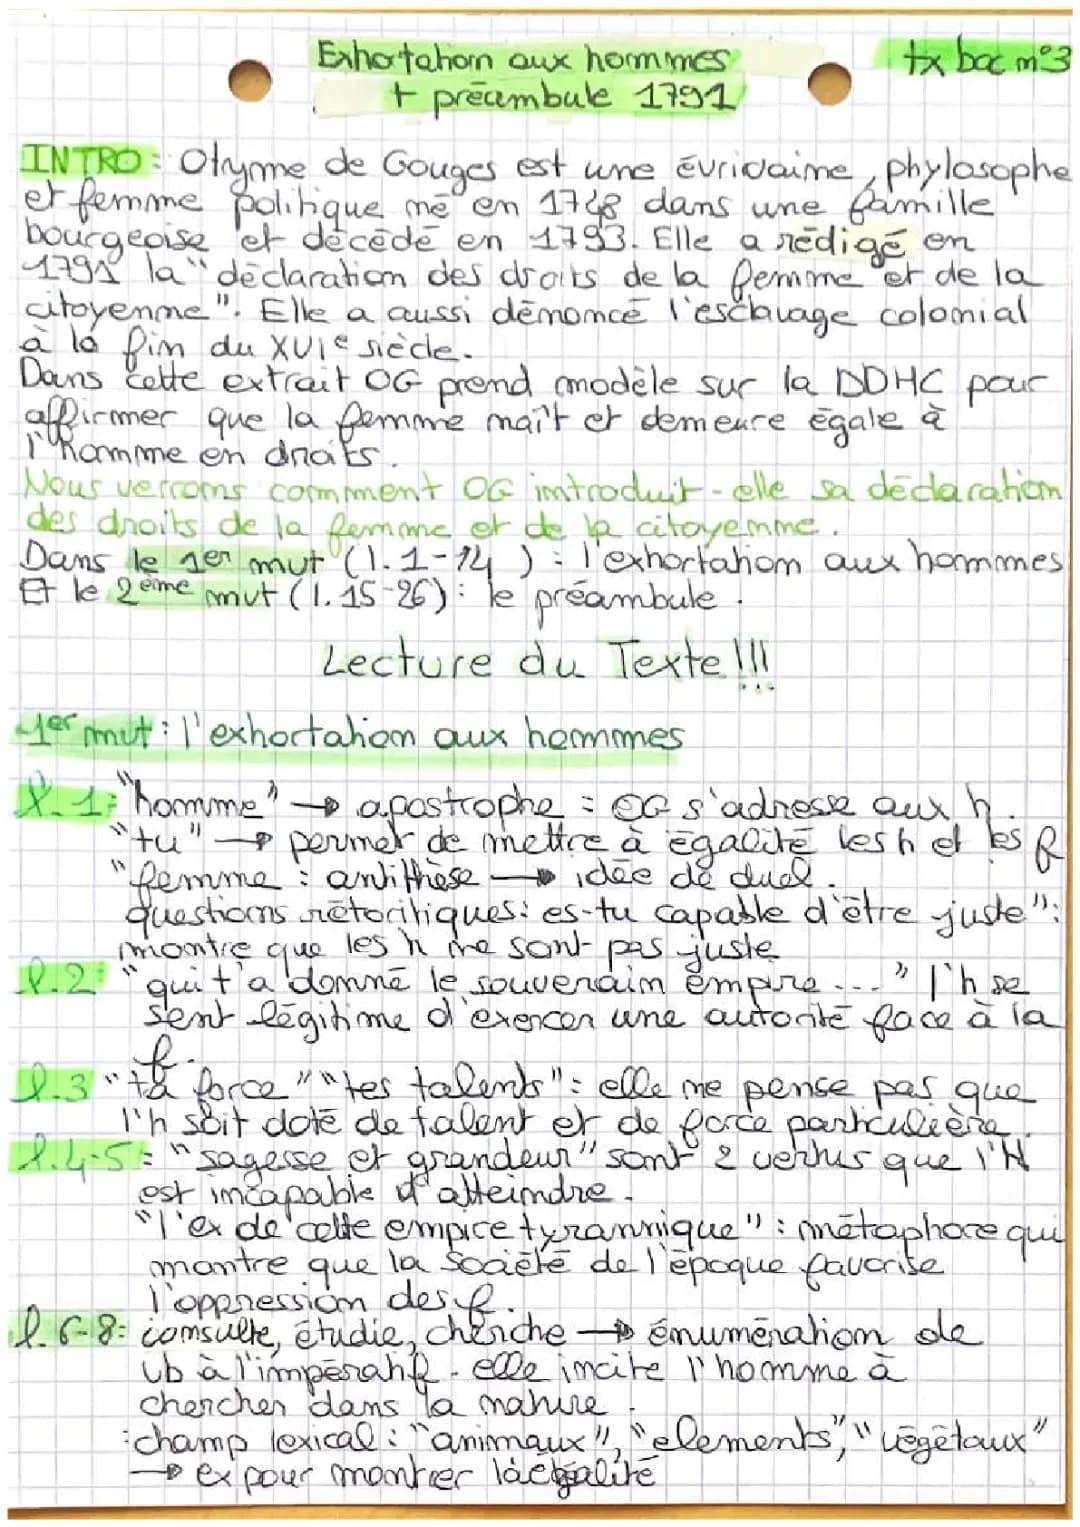 Exhortation aux hommes
tx bac n°3
+ préambule 1791
INTRO: Olymne de Gouges est une évrivaine, phylosophe
et femme politique né en 1748 dans une famille
bourgeoise et décédé en 1793. Elle a rédigé en
1791 la "déclaration des droits de la femme et de la
citoyenne". Elle a aussi dénoncé l'esclavage colonial
à la fin du XVIe siècle.
Dans cette extrait OG prend modèle sur la DDHC pour
affirmer que la femme naît et demeure égale à
l'homme en droits.
Nous verrons comment OG introduit-elle sa déclaration
des droits de la femme et de la citoyenne.
Dans le 1er mvt (l. 1-14) : l'exhortation aux hommes
Et le 2ème mvt (l. 15-26) : le préambule.
Lecture du Texte !!!
1er mvt : l'exhortation aux hommes
l.1: "homme" → apostrophe = OG s'adresse aux h.
"tu" → permet de mettre à égalité les h et les f
"femme : antithèse → idée de duel.
questions rétoritiques: es-tu capable d'être juste":
montre que les h ne sont pas juste
l.2: "qui t'a donné le souverain empire..." l'h se
sent légitime d'exercer une autorité face à la
f.
l.3 "ta force" "tes talents": elle ne pense pas que
l'h soit doté de talent et de force particulière.
l.4-5: "sagesse et grandeur" sont 2 vertus que l'H
est incapable d'atteindre.
"l'ex de cette empire tyrannique": métaphore qui
montre que la société de l'époque favorise
l'oppression des f.
l.6-8: consulte, étudie, cherche → énumération de
vb à l'impératif. elle incite l'homme à
chercher dans la nature.
:champ lexical: "animaux", "elements", "végétaux"
→ ex pour montrer l'égalité